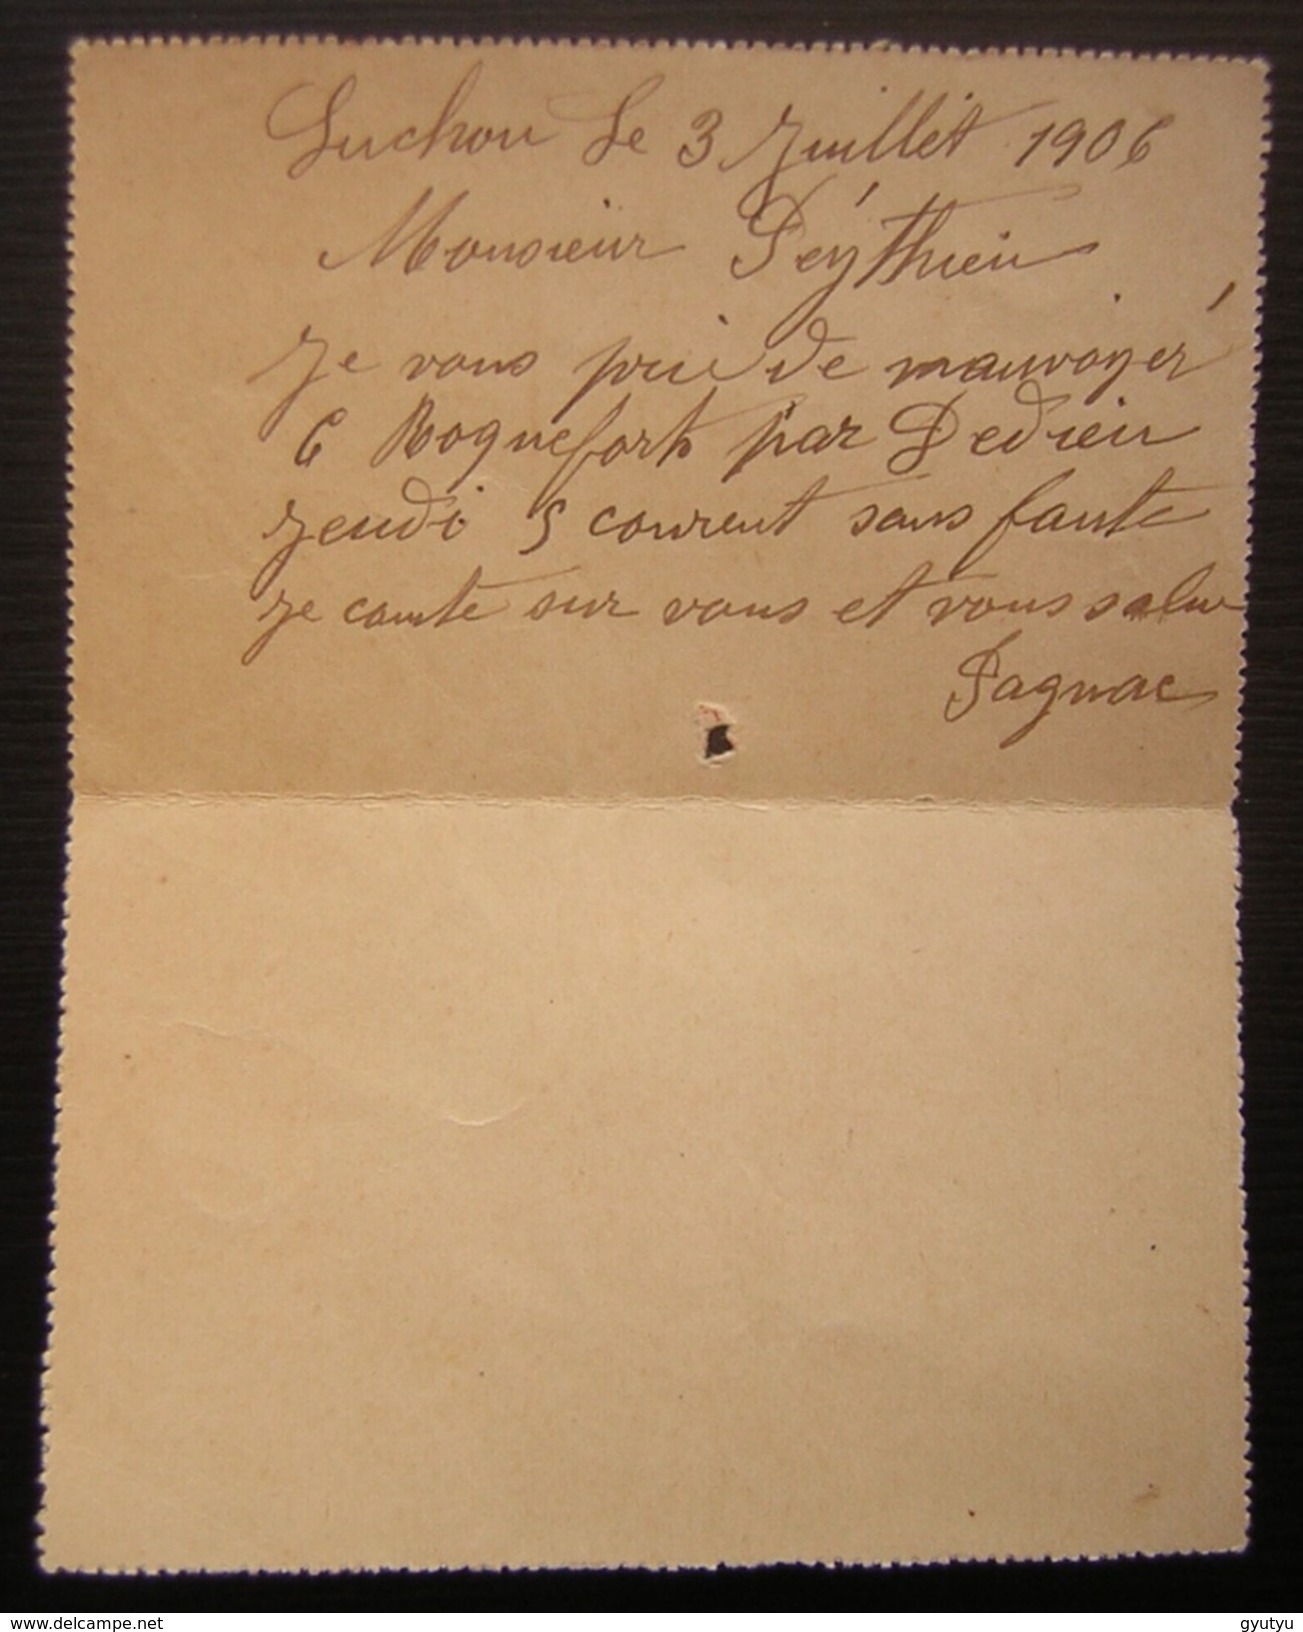 Luchon Le 3 Juillet 1906
Monsieur Péythieu
Je vous prie de manvoyér
6 Roqueforts par Dedieu
Jeudi 5 courent sans faute
Je conte sur vous et vous salue
Pagnac
www.delcampe.net
gyutyu